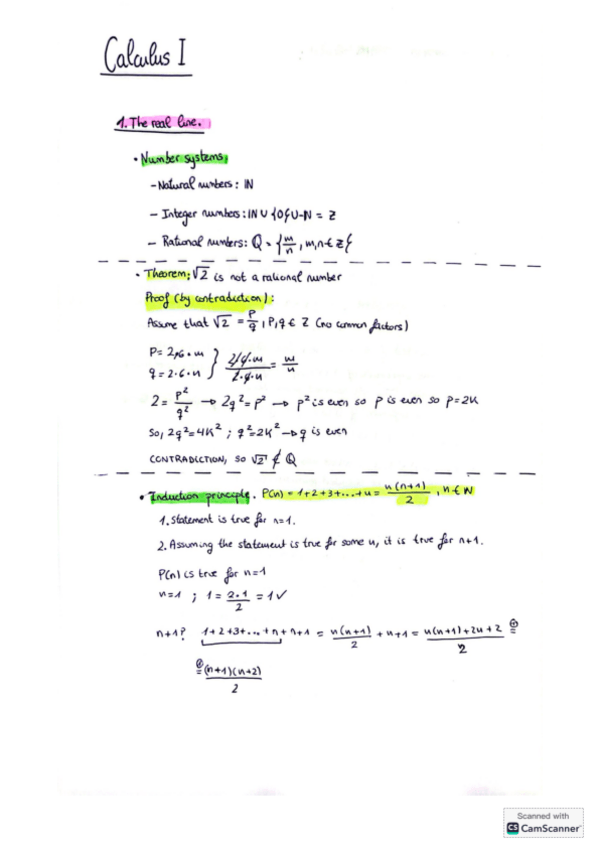 Calculus I
1. The real line.
• Number systems:
- Natural numbers: ℕ
- Integer numbers: ℕ ∪ {0} ∪ -N = Z
- Rational numbers: Q = {m/n, m,n ∈ Z}
• Theorem: √2 is not a rational number
Proof (by contradiction):
Assume that √2 = p/q, p,q ∈ Z (no common factors)
P = 2·6·m
q = 2·6·n } 2/6·m / 2·6·n = m/n
2 = p²/q² → 2q² = p² → p² is even so p is even so p=2K
So, 2q²=4K² ; q²=2K² → q is even
CONTRADICTION, so √2 ∉ Q
• Induction principle. P(n) = 1+2+3+...+n = n(n+1)/2, n ∈ N
1. Statement is true for n=1.
2. Assuming the statement is true for some n, it is true for n+1.
P(n) is true for n=1
n=1 ; 1 = 2·1/2 = 1 ✓
n+1? 1+2+3+...+n+n+1 = n(n+1)/2 + n+1 = n(n+1)+2n+2/2 =
= (n+1)(n+2)/2
Scanned with
CS CamScanner